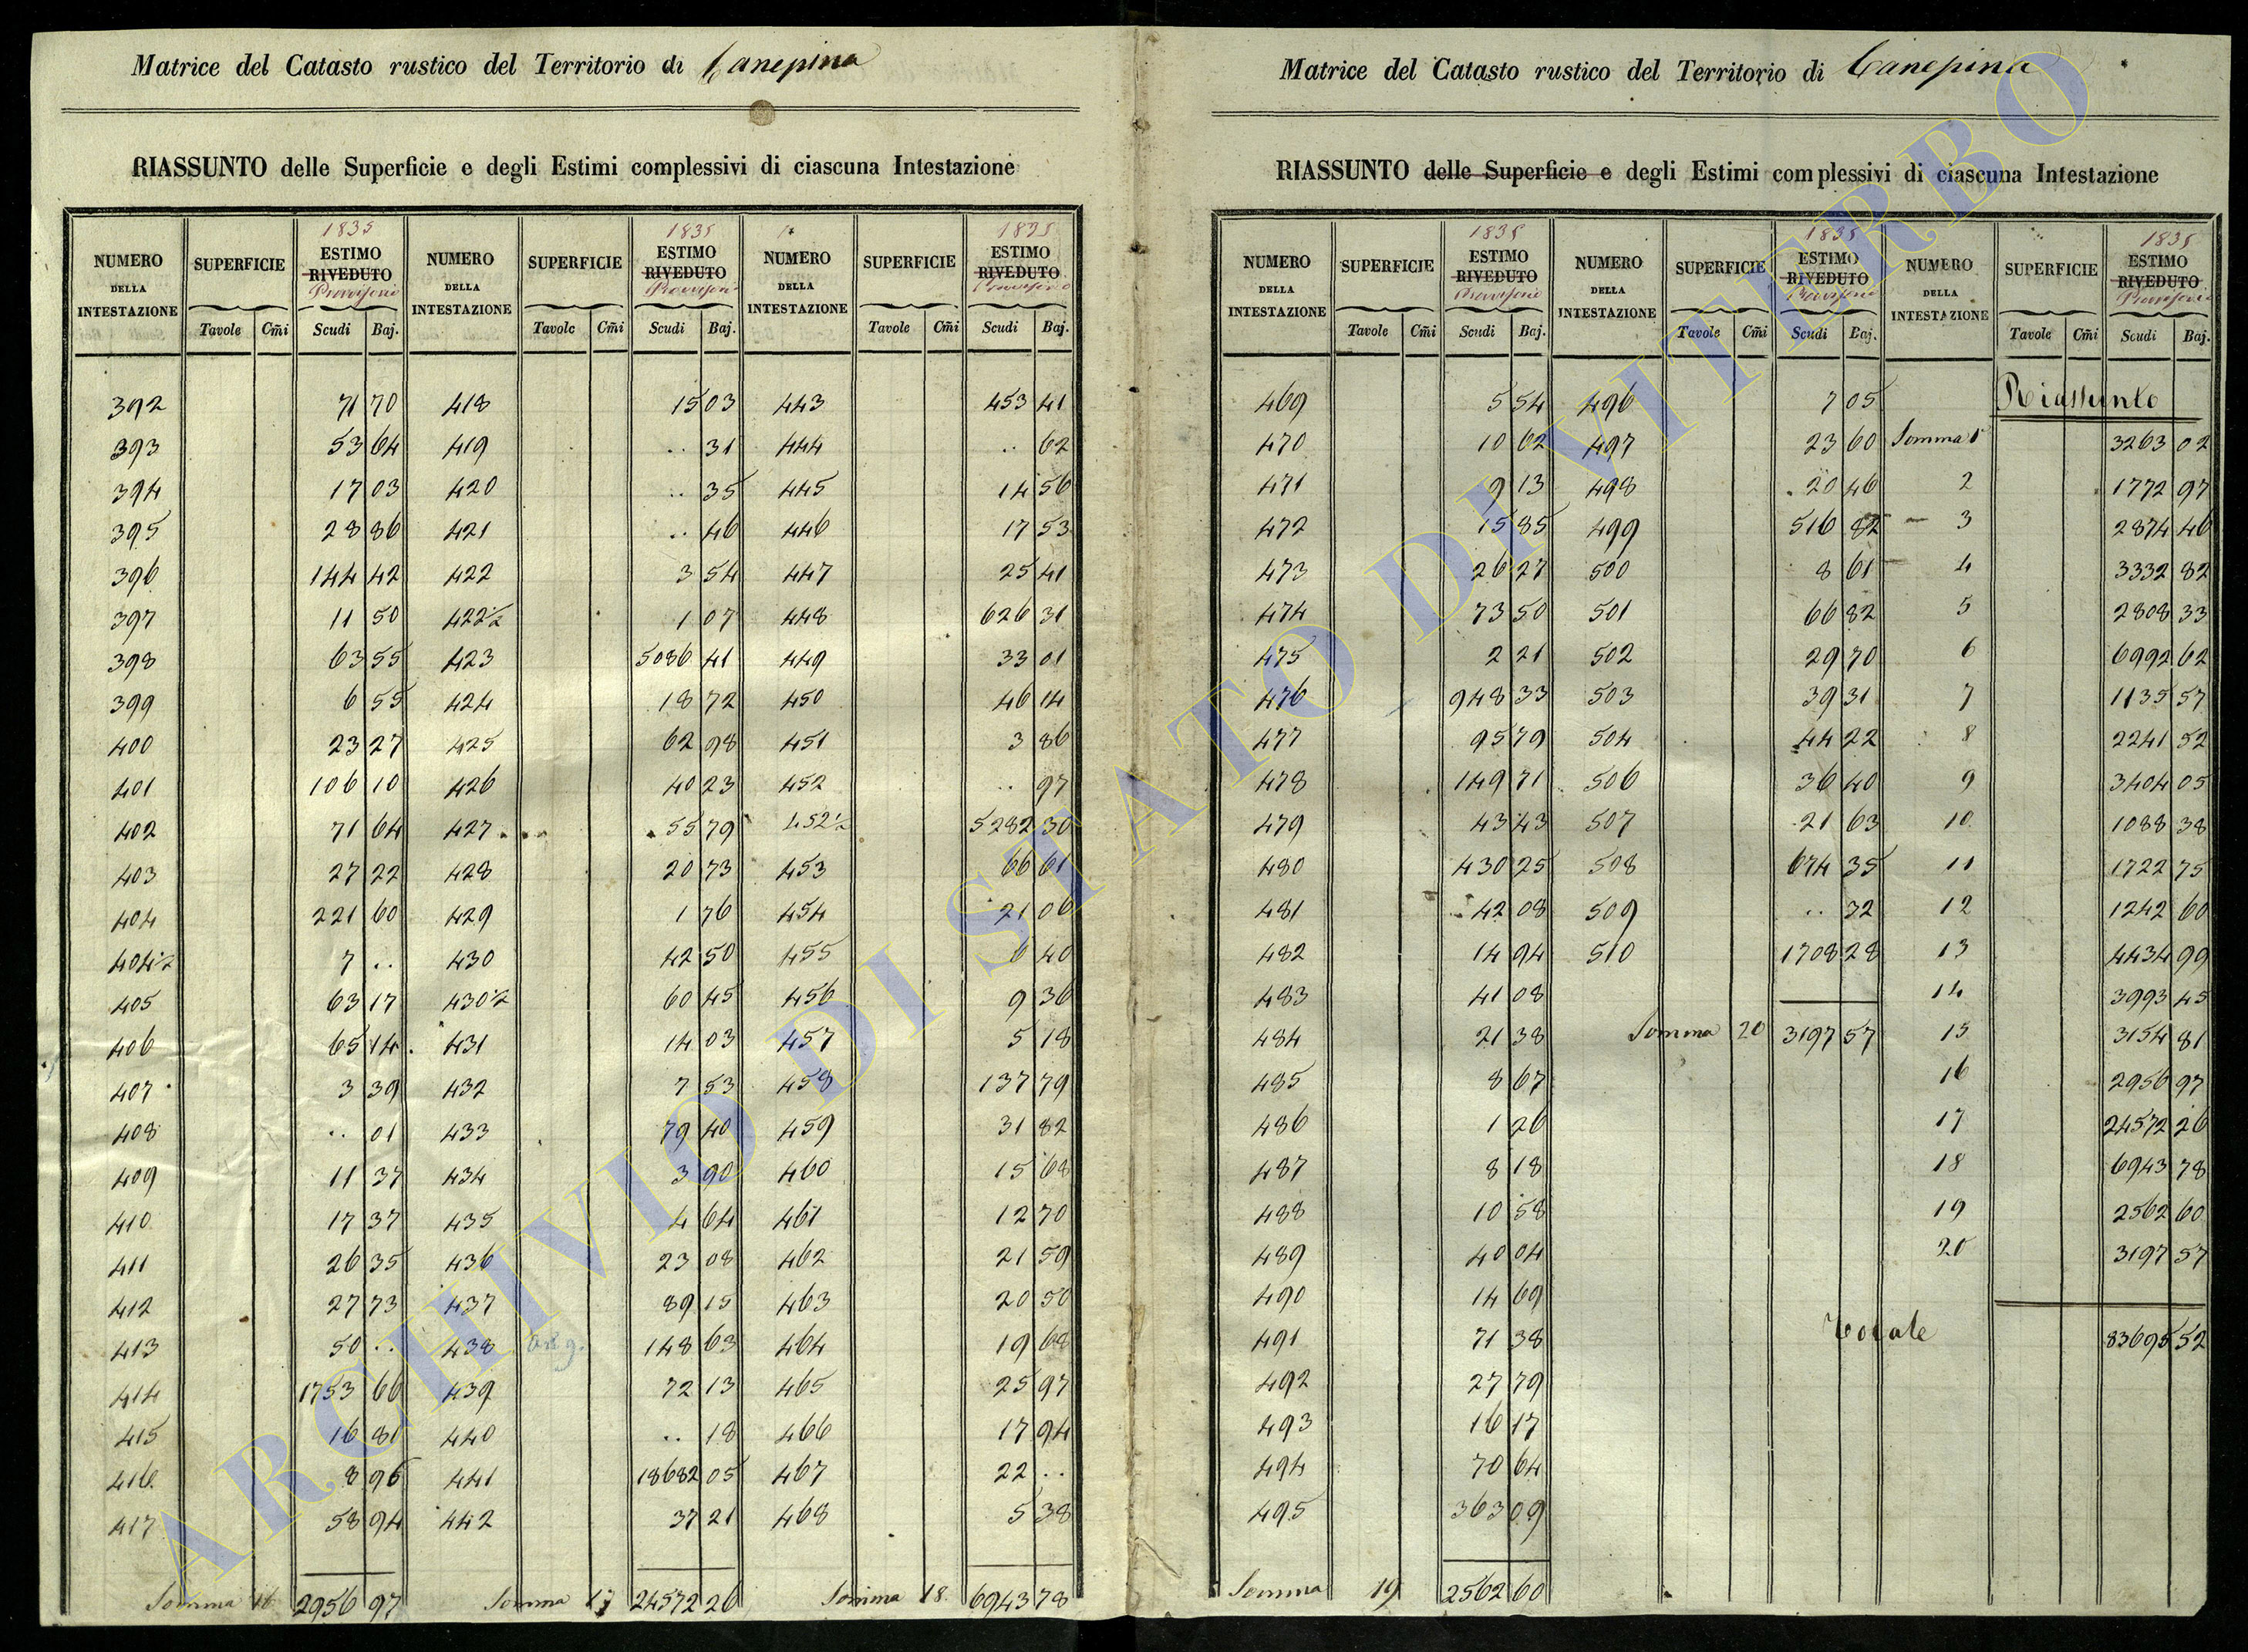 Matrice del Catasto rustico del Territorio di Canepina
RIASSUNTO delle Superficie e degli Estimi complessivi di ciascuna Intestazione
1835 1835 1835
NUMERO DELLA INTESTAZIONE SUPERFICIE ESTIMO RIVEDUTO Provvisorio NUMERO DELLA INTESTAZIONE SUPERFICIE ESTIMO RIVEDUTO NUMERO DELLA INTESTAZIONE SUPERFICIE ESTIMO RIVEDUTO Provvisorio
Tavole Cm̃i Scudi Baj. Tavole Cm̃i Scudi Baj. Tavole Cm̃i Scudi Baj.
392 71 70 418 15 03 443 453 41
393 53 64 419 .. 31 444 .. 62
394 17 03 420 .. 35 445 14 56
395 28 86 421 .. 46 446 17 53
396 144 42 422 3 54 447 25 41
397 11 50 422½ 1 07 448 626 31
398 63 55 423 5086 41 449 33 01
399 6 55 424 18 72 450 46 14
400 23 27 425 62 98 451 3 86
401 106 10 426 40 23 452 .. 97
402 71 64 427 55 79 452½ 5282 30
403 27 22 428 20 73 453 66 61
404 221 60 429 1 76 454 21 06
404½ 7 .. 430 42 50 455 6 40
405 63 17 430½ 60 45 456 9 36
406 65 14 431 14 03 457 5 18
407 3 39 432 7 53 458 137 79
408 .. 01 433 79 40 459 31 82
409 11 37 434 3 90 460 15 68
410 17 37 435 4 64 461 12 70
411 26 35 436 23 08 462 21 59
412 27 73 437 89 15 463 20 50
413 50 .. 438 148 63 464 19 68
414 1753 66 439 72 13 465 25 97
415 16 81 440 .. 18 466 17 94
416 8 96 441 18682 05 467 22 ..
417 58 94 442 37 21 468 5 38
Somma 16 2956 97 Somma 17 24572 26 Somma 18 6943 78
Matrice del Catasto rustico del Territorio di Canepina
RIASSUNTO delle Superficie e degli Estimi complessivi di ciascuna Intestazione
1835 1835 1835
NUMERO DELLA INTESTAZIONE SUPERFICIE ESTIMO RIVEDUTO Provvisorio NUMERO DELLA INTESTAZIONE SUPERFICIE ESTIMO RIVEDUTO Provvisorio NUMERO DELLA INTESTAZIONE SUPERFICIE ESTIMO RIVEDUTO Provvisorio
Tavole Cm̃i Scudi Baj. Tavole Cm̃i Scudi Baj. Tavole Cm̃i Scudi Baj.
469 5 54 496 7 05 Riassunto
470 10 62 497 23 60 Somma 1 3263 02
471 9 13 498 20 46 2 1772 97
472 15 85 499 516 82 3 2874 46
473 26 27 500 8 61 4 3332 82
474 73 50 501 66 82 5 2808 33
475 2 21 502 29 70 6 6992 62
476 948 33 503 39 31 7 1135 57
477 95 79 504 44 22 8 2241 52
478 149 71 506 36 40 9 3404 05
479 43 43 507 21 63 10 1088 38
480 430 25 508 674 35 11 1722 75
481 42 08 509 .. 32 12 1242 60
482 14 94 510 1708 28 13 4434 99
483 41 08 14 3993 45
484 21 38 Somma 20 3197 57 15 3154 81
485 8 67 16 2956 97
486 1 26 17 24572 26
487 8 18 18 6943 78
488 10 58 19 2562 60
489 40 04 20 3197 57
490 14 69
491 71 38 Totale 83695 52
492 27 79
493 16 17
494 70 64
495 363 09
Somma 19 2562 60
ARCHIVIO DI STATO DI VITERBO